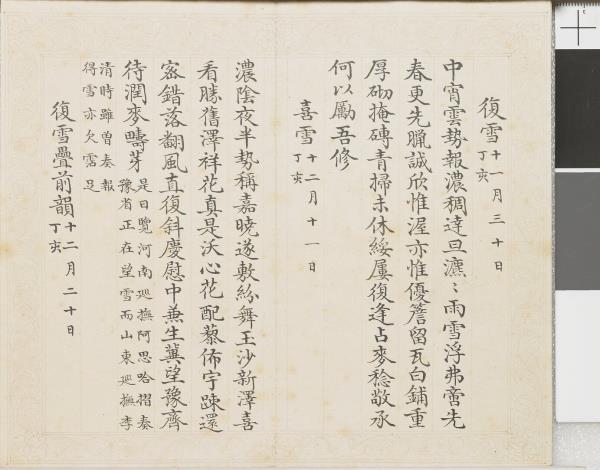 復雪十一月三十日
丁亥
中宵雲勢報濃稠達旦瀌〻雨雪浮弗啻先
春更先臘誠欣惟渥亦惟優簷留瓦白鋪重
厚砌掩磚青掃未休綏屢復逢占麥稔敬承
何以勵吾修
喜雪十二月十一日
丁亥
濃陰夜半勢稱嘉曉遂敷紛舞玉沙新澤喜
看勝舊澤祥花真是沃心花配藜佈宇踈還
密錯落翻風直復斜慶慰中兼生冀望豫齊
待潤麥疇芽
是日覽河南廵撫阿思哈摺奏
豫省正在望雪而山東廵撫李
清時雖曾奏報
得雪亦欠霑足
復雪疊前韻十二月二十日
丁亥